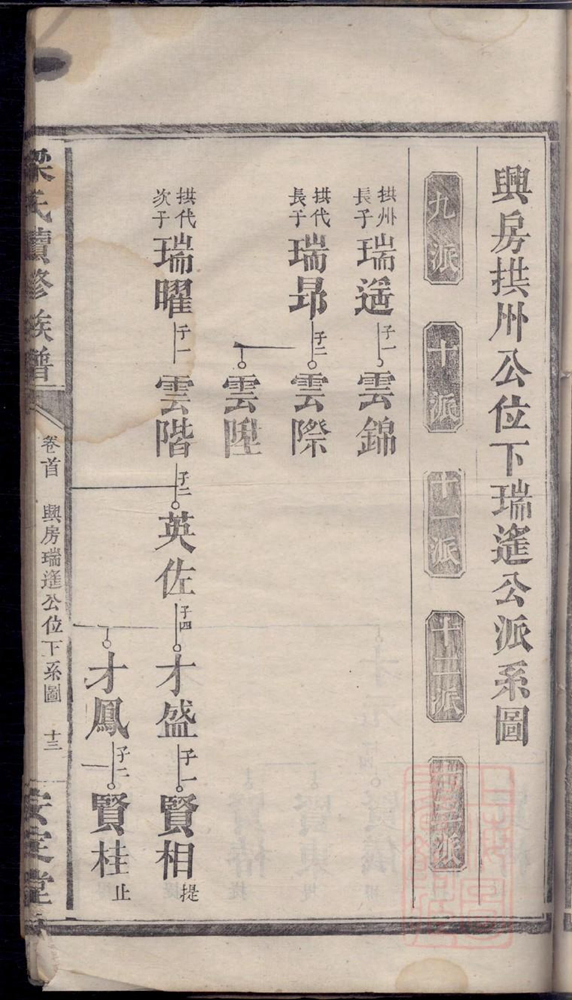 興房拱州公位下瑞遙公派系圖
九派
十派
十一派
十二派
十三派
拱州
長子
瑞遙
子一
雲錦
拱代
長子
瑞昂
子二
雲際
雲陞
拱代
次子
瑞曜
子一
雲階
子二
英佐
子四
才盛
子一
賢相
提
才鳳
子二
賢桂
止
梁氏續修族譜
卷首
興房瑞遙公位下系圖
十三
安定堂